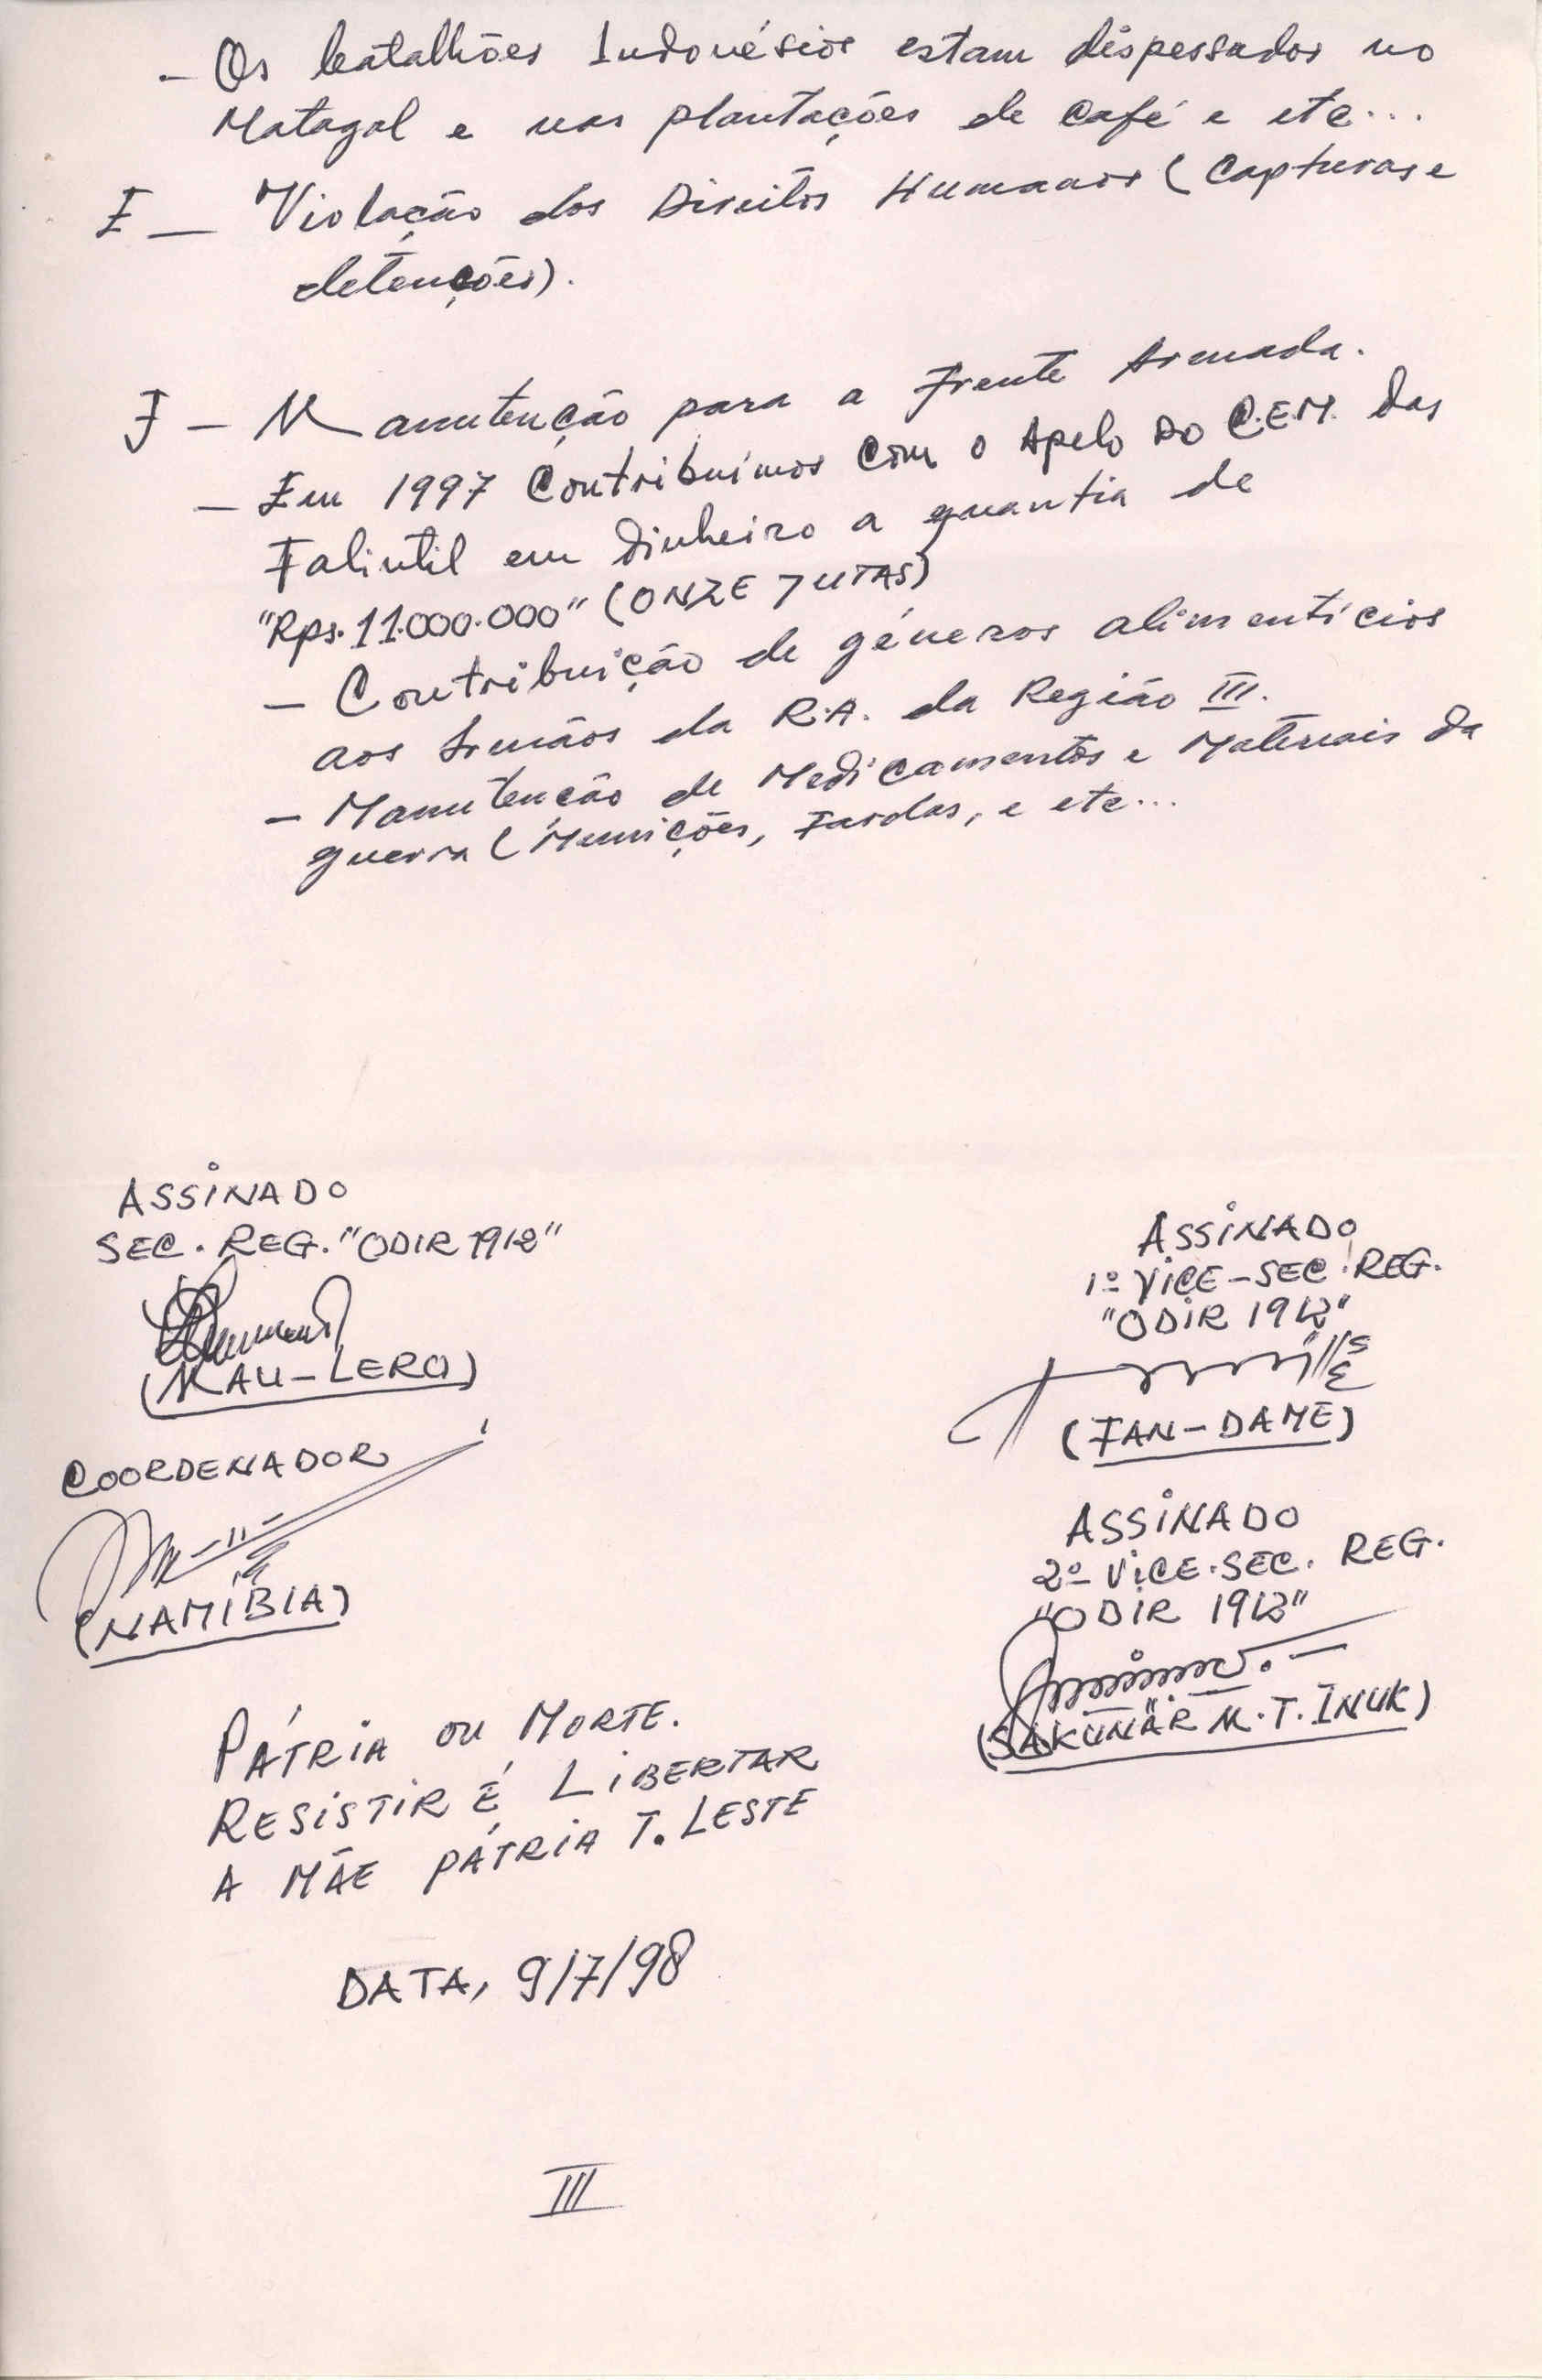 - Os batalhões Indonésios estam dispessados no
Matagal e nas plantações de café e etc...
E - Violação dos Direitos Humanos (Capturas e
detenções).
F - Manutenção para a Frente Armada.
- Em 1997 Contribuimos com o Apelo DO C.E.M. das
Falintil em dinheiro a quantia de
"Rps. 11.000.000" (ONZE JUTAS)
- Contribuição de géneros alimentícios
aos Irmãos da R.A. da Região III.
- Manutenção de Medicamentos e Materiais da
guerra (Munições, Fardas, e etc...
ASSINADO
SEC. REG. "ODIR 1912"
(MAU-LERO)
COORDENADOR
(NAMÍBIA)
ASSINADO
1º VICE-SEC. REG.
"ODIR 1912"
(FAN-DAME)
ASSINADO
2º VICE.SEC. REG.
"ODIR 1912"
(SAKUNAR M.T. INUK)
PÁTRIA OU MORTE.
RESISTIR É LIBERTAR
A MÃE PÁTRIA T. LESTE
DATA, 9/7/98
III